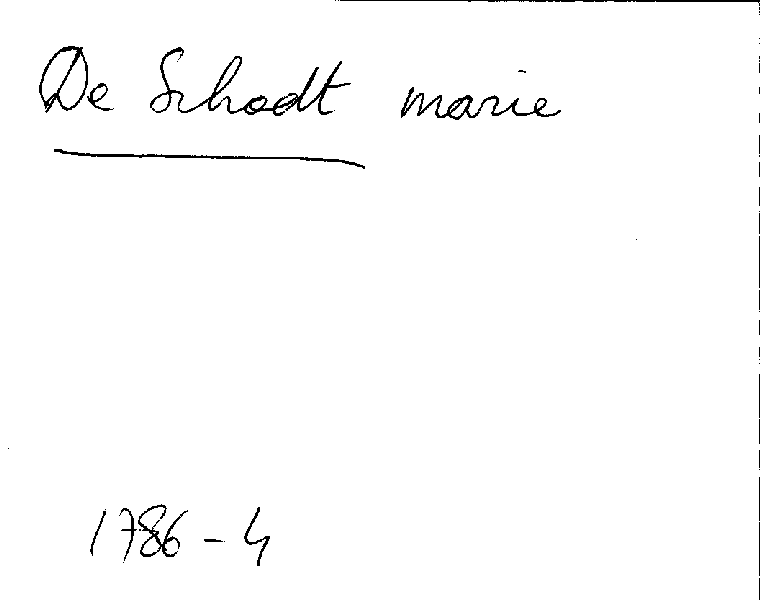 De Schodt marie
1786-4